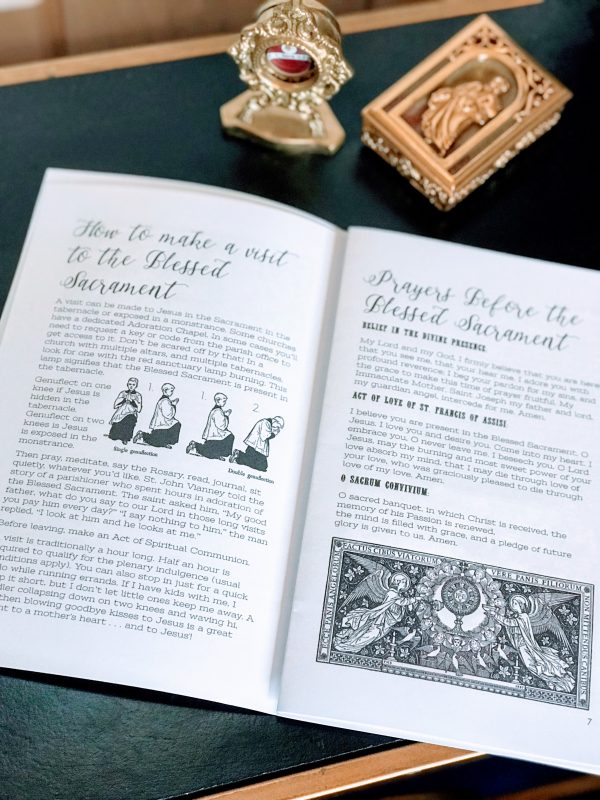 How to make a visit
to the Blessed
Sacrament
A visit can be made to Jesus in the Sacrament in the
tabernacle or exposed in a monstrance. Some churches
have a dedicated Adoration Chapel. In some cases you'll
need to request a key or code from the parish office to
get access to it. Don't be scared off by that! In a
church with multiple altars, and multiple tabernacles,
look for one with the red sanctuary lamp burning. This
lamp signifies that the Blessed Sacrament is present in
the tabernacle.
Genuflect on one
knee if Jesus is
hidden in the
tabernacle.
Genuflect on two
knees is Jesus
is exposed in the
monstrance.
1.
1.
2.
Single genuflection
Double genuflection
Then pray, meditate, say the Rosary, read, journal, sit
quietly, whatever you'd like. St. John Vianney told the
story of a parishioner who spent hours in adoration of
the Blessed Sacrament. The saint asked him, "My good
father, what do you say to our Lord in those long visits
you pay him every day?" "I say nothing to him," the man
replied, "I look at him and he looks at me."
Before leaving, make an Act of Spiritual Communion.
visit is traditionally a hour long. Half an hour is
quired to qualify for the plenary indulgence (usual
nditions apply). You can also stop in just for a quick
lo while running errands. If I have kids with me, I
p it short, but I don't let little ones keep me away. A
ller collapsing down on two knees and waving hi,
then blowing goodbye kisses to Jesus is a great
nt to a mother's heart . . . and to Jesus!
Prayers Before the
Blessed Sacrament
BELIEF IN THE DIVINE PRESENCE
My Lord and my God, I firmly believe that you are here
that you see me, that you hear me. I adore you with
profound reverence. I beg your pardon for my sins, and
the grace to make this time of prayer fruitful. My
Immaculate Mother, Saint Joseph my father and lord,
my guardian angel, intercede for me. Amen.
ACT OF LOVE OF ST. FRANCIS OF ASSISI
I believe you are present in the Blessed Sacrament, O
Jesus. I love you and desire you. Come into my heart. I
embrace you, O never leave me. I beseech you, O Lord
Jesus, may the burning and most sweet power of your
love absorb my mind, that I may die through love of
your love, who was graciously pleased to die through
love of my love. Amen.
O SACRUM CONVIVIUM
O sacred banquet, in which Christ is received, the
memory of his Passion is renewed,
the mind is filled with grace, and a pledge of future
glory is given to us. Amen.
FACTUS CIBUS VIATORUM
VERE PANIS FILIORUM
ECCE PANIS ANGELORUM
NON MITTENDUS CANIBUS
7